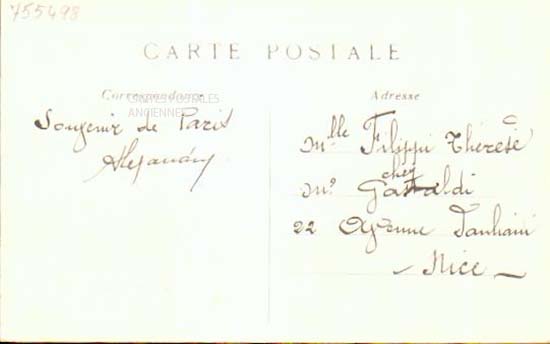 755498
CARTE POSTALE
Correspondance
CARTES POSTALES
ANCIENNES
Adresse
Souvenir de Paris
Mlle Filippi Thérèse
chez
Mo Gastaldi
22 Avenue
Nice